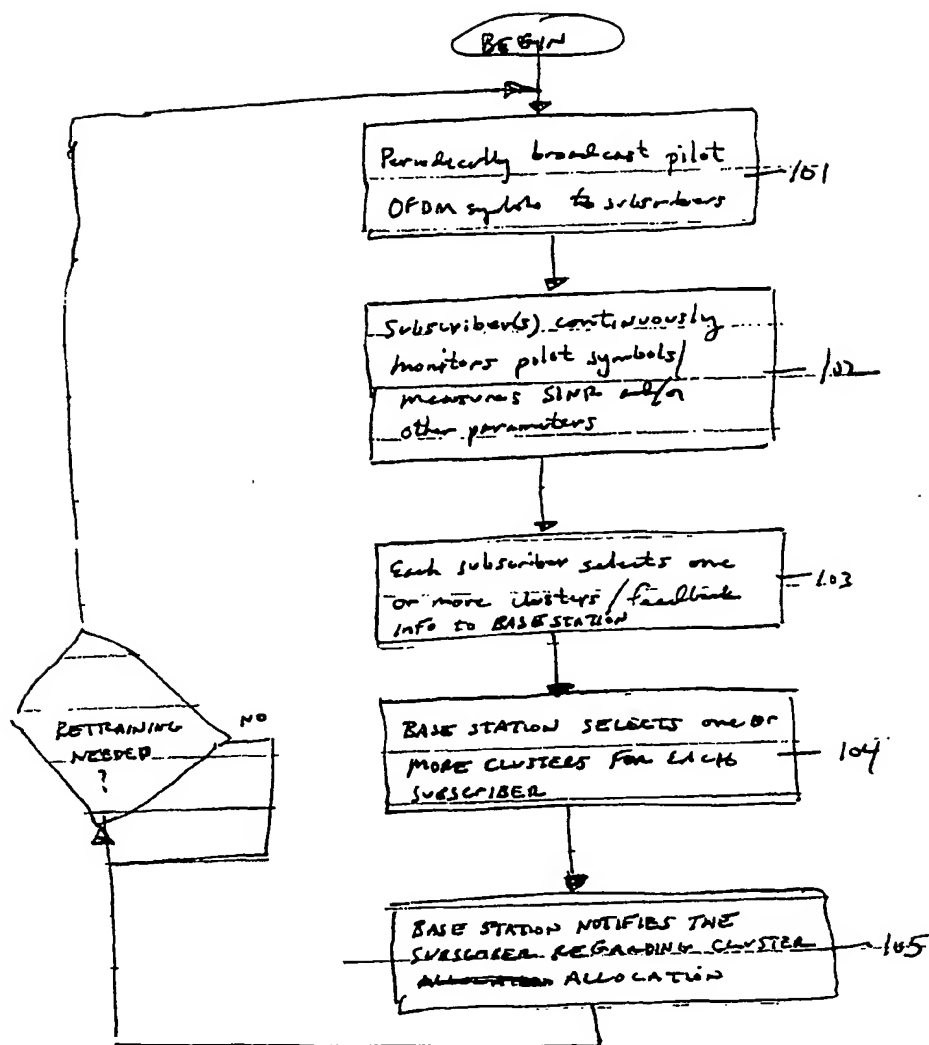 BEGIN
Periodically broadcast pilot
OFDM symbols to subscribers
101
Subscriber(s) continuously
monitors pilot symbols/
measures SINR and/or
other parameters
102
Each subscriber selects one
or more clusters/feedback
info to BASE STATION
103
BASE STATION SELECTS one or
MORE CLUSTERS FOR EACH
SUBSCRIBER
104
BASE STATION NOTIFIES THE
SUBSCRIBER REGARDING CLUSTER
ALLOCATION
105
RETRAINING
NEEDED
?
NO